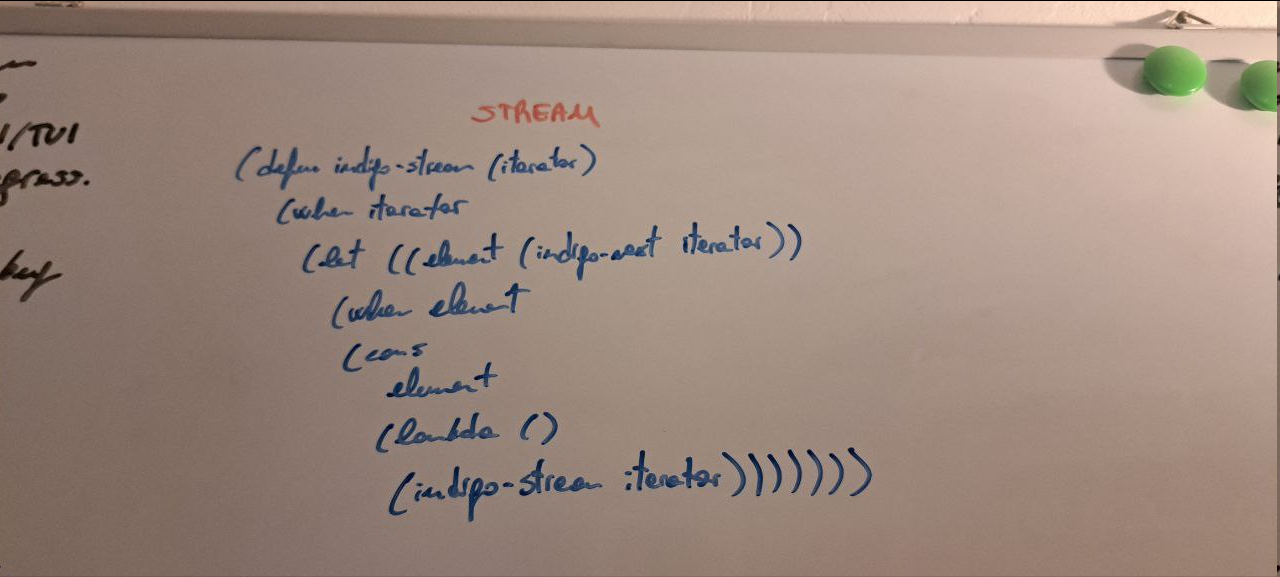 STREAM
I/TUI
gress.
key
(define indigo-stream (iterator)
(when iterator
(let ((element (indigo-next iterator))
(when element
(cons
element
(lambda ()
(indigo-stream iterator)))))))